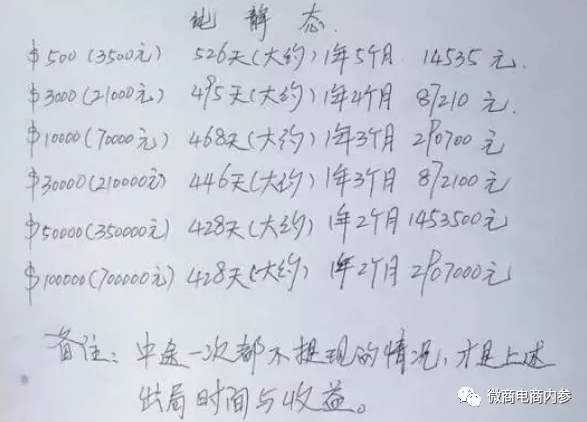 纯静态
$500(3500元) 526天(大约)1年5个月 14535元.
$3000(21000元) 495天(大约)1年4个月 87210元.
$10000(70000元) 468天(大约)1年3个月 290700元
$30000(210000元) 446天(大约)1年3个月 872100元
$50000(350000元) 428天(大约)1年2个月 1453500元
$100000(700000元) 428天(大约)1年2个月 2907000元
备注:中途一次都不提现的情况,才是上述
出局时间与收益。
微商电商内参